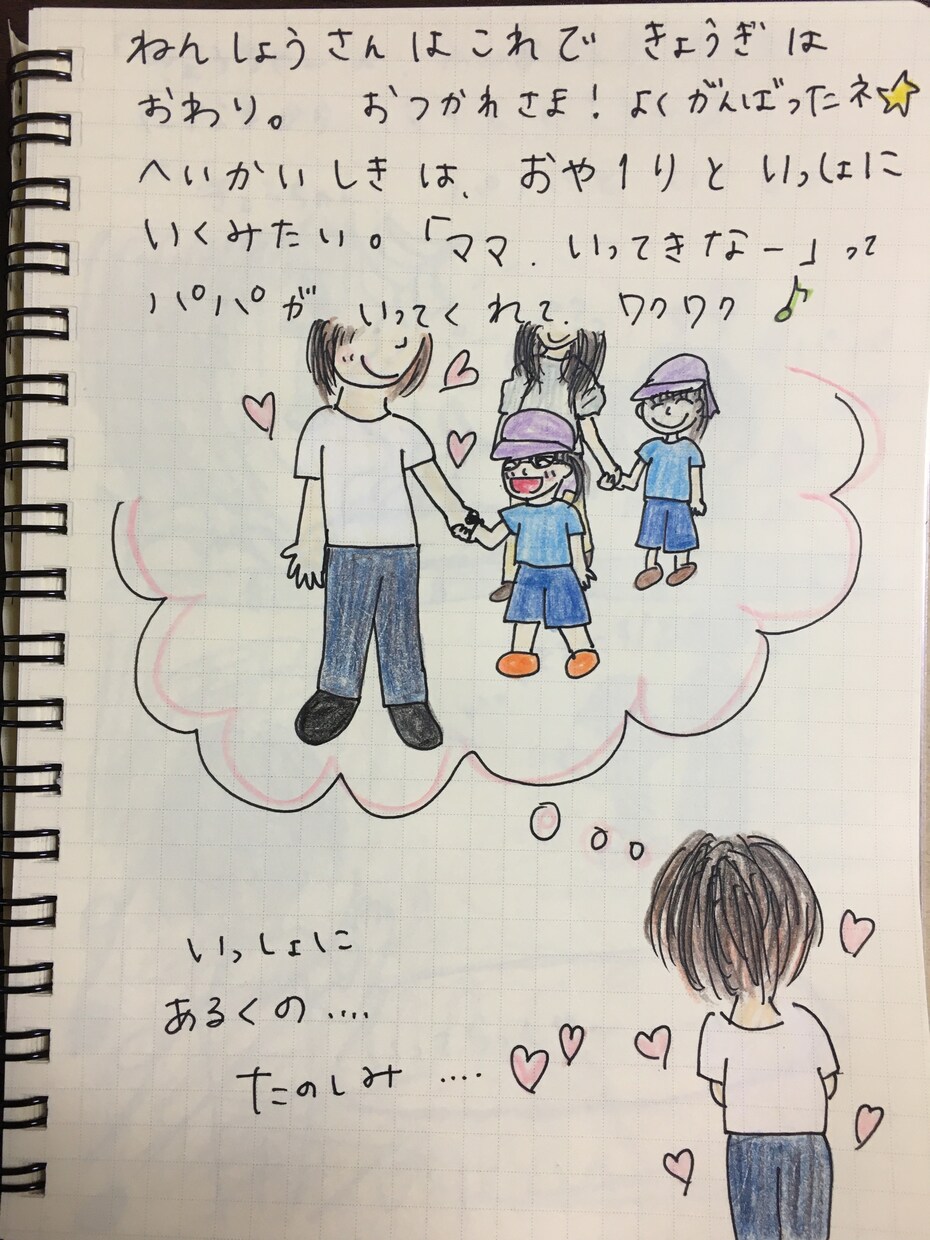 ねんしょうさんはこれで きょうぎは
おわり。 おつかれさま! よくがんばったネ
へいかいしきは、おや1りといっしょに
いくみたい。「ママ、いってきなー」って
パパが いってくれて、ワクワク
いっしょに
あるくの....
たのしみ ....